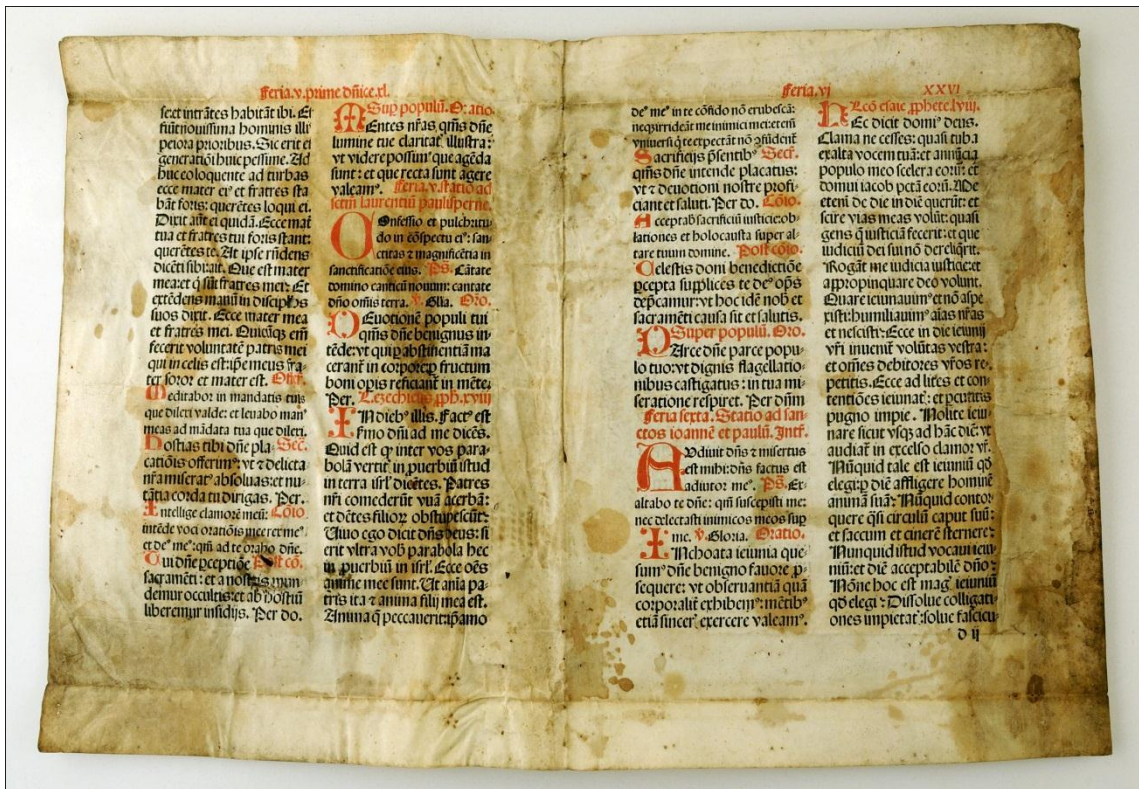 Feria.v.prime dñice.xl.
set intrātes habitāt ibi. Et
fiūt nouissima hominis illi⁹
peiora prioribus. Sic erit et
generatiōi huic pessime. Ad
huc eo loquente ad turbas
ecce mater ei⁹ et fratres sta
bāt foris: querētes loqui ei.
Dixit aūt ei quidā. Ecce mat̄
tua et fratres tui foris stant:
querētes te. At ipse rñdens
dicēti sibi: ait. Que est mater
mea: et q̄ sūt fratres mei: Et
extēdens manū in discipl'os
suos dixit. Ecce mater mea
et fratres mei. Quicūq; em̄
fecerit voluntatē patris mei
qui in celis est: ip̄e meus fra-
ter soror et mater est. Offer.
Meditabor in mandatis tuis
que dilexi valde: et leuabo man⁹
meas ad mādata tua que dilexi.
Hostias tibi dñe pla- Sec̄.
catiōis offerim⁹: vt ⁊ delicta
nr̄a miserat⁹ absoluas: et nu-
tātia corda tu dirigas. Per.
Intellige clamorē meū: Cōio.
intēde voci orationis mee rex me⁹
et de⁹ me⁹: qm̄ ad te orabo dñe.
Cui dñe perceptiōe Post cō.
sacramēti: et a nostris mun
demur occultis: et ab hostiū
liberemur insidijs. Per do.
Sup populū. Oratio.
Mentes nr̄as qm̄s dñe
lumine tue claritat̄ illustra:
vt videre possim⁹ que agēda
sunt: et que recta sunt agere
valeam⁹. Feria.v. statio ad
sctm̄ laurentiū panisperne.
Confessio et pulchritu
do in cōspectu ei⁹: san
ctitas ⁊ magnificētia in
sanctificatiōe eius. Ps. Cātate
domino canticū nouum: cantate
dño om̄is terra. ℣. Glia. Oro.
Deuotionē populi tui
qm̄s dñe benignus in
tēde: vt qui ꝑ abstinentiā ma
cerant̄ in corpore: ꝑ fructum
boni opis reficiant̄ in mēte.
Per. Lec̄ ezechielis ꝓph. xviii
In dieb⁹ illis. Fact⁹ est
sermo dñi ad me dicēs.
Quid est ꝙ inter vos para-
bolā vertit̄ in ꝓuerbiū istud
in terra isrl' dicētes. Patres
nr̄i comederūt vuā acerbā:
et dētes filioꝝ obstupescūt:
Uiuo ego dicit dñs deus: si
erit vltra vob̄ parabola hec
in ꝓuerbiū in isrl'. Ecce oēs
anime mee sunt. Ut aīa pa-
tris ita ⁊ anima filij mea est.
Anima q̄ peccauerit: ip̄a mo
Feria.vi
XXVI
de⁹ me⁹ in te cōfido nō erubescā:
neq; irrideāt me inimici mei: etem̄
vniuersi q̄ te expectāt nō ꝯfūdent̄
Sacrificijs p̄sentib⁹ Sec̄.
qm̄s dñe intende placatus:
vt ⁊ deuotioni nostre profi-
ciant et saluti. Per do. Cōio.
Acceptab̄ sacrificiū iusticie: ob-
lationes et holocausta super al-
tare tuum domine. Post cōio.
Celestis doni benedictiōe
ꝑcepta supplices te de⁹ op̄s
dep̄camur: vt hoc idē nob̄ et
sacramēti causa sit et salutis.
Super populū. Oro.
Parce dñe parce popu-
lo tuo: vt dignis flagellatio-
nibus castigatus: in tua mi-
seratione respiret. Per dñm
Feria sexta. Statio ad san-
ctos ioannē et paulū. Intr̄.
Audiuit dñs ⁊ misertus
est mihi: dñs factus est
adiutor me⁹. Ps. Ex-
altabo te dñe: qm̄ suscepisti me:
nec delectasti inimicos meos sup
me. ℣. Gloria. Oratio.
Inchoata ieiunia que-
sum⁹ dñe benigno fauore ꝓ-
sequere: vt obseruantiā quā
corporalit̄ exhibem⁹: mētib⁹
etiā sincer⁹ exercere valeam⁹.
Lec̄o esaie ꝓphete. lviii.
Hec dicit domi⁹ deus.
Clama ne cesses: quasi tuba
exalta vocem tuā: et annūcia
populo meo scelera eoꝝ: et
domui iacob pctā eoꝝ. Me
eteni de die in diē querūt: et
scire vias meas volūt: quasi
gens q̄ iusticiā fecerit: et que
iudiciū dei sui nō dereliq̄rit.
Rogāt me iudicia iusticie: et
appropinquare deo volunt.
Quare ieiunauim⁹ et nō aspe
xisti: humiliauim⁹ aīas nr̄as
et nescisti: Ecce in die ieiunij
vr̄i inuenit̄ volūtas vestra:
et om̄es debitores vr̄os re-
petitis. Ecce ad lites et con-
tentiōes ieiunat̄: et ꝑcutitis
pugno impie. Nolite ieiu-
nare sicut vsq; ad hāc diē: vt
audiat̄ in excelso clamor vr̄.
Nūquid tale est ieiuniū qd̄
elegi: ꝑ diē affligere hominē
animā suā: Nūquid contor-
quere q̄si circulū caput suū:
et saccum et cinerē sternere:
Nunquid istud vocaui ieiu-
niū: et diē acceptabilē dño:
Nōne hoc est maḡ ieiuniū
qd̄ elegi: Dissolue colligati-
ones impietat̄: solue fascicu-
d ij